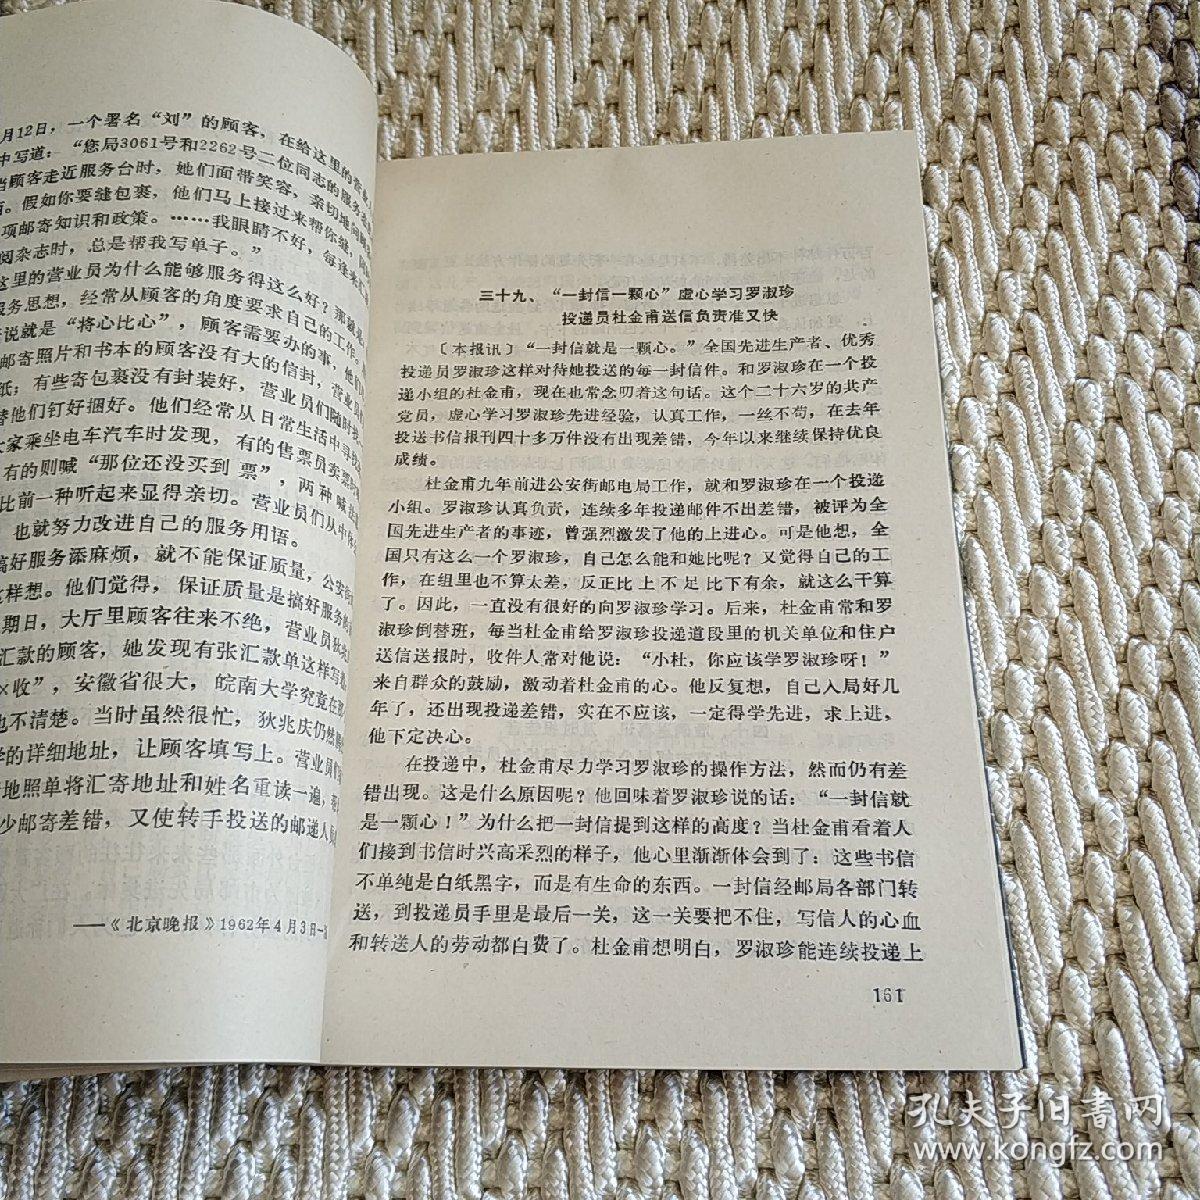 月12日，一个署名“刘”的顾客，在给这里的
中写道：“您局3061号和2262号二位同志的服务
当顾客走近服务台时，她们面带笑容，亲切地问
。假如你要缝包裹，他们马上接过来帮你缝，
项邮寄知识和政策。……我眼睛不好，每逢来
阅杂志时，总是帮我写单子。”
这里的营业员为什么能够服务得这么好？那就是
服务思想，经常从顾客的角度要求自己的工作。
说就是“将心比心”，顾客需要办的事，他们
邮寄照片和书本的顾客没有大的信封，营业员
纸；有些寄包裹没有封装好，营业员们随时
替他们钉好捆好。他们经常从日常生活中寻找
大家乘坐电车汽车时发现，有的售票员卖票时
有的则喊“那位还没买到票”，两种喊
比前一种听起来显得亲切。营业员们从中
也就努力改进自己的服务用语。
搞好服务添麻烦，就不能保证质量，公安街
这样想。他们觉得，保证质量是搞好服务的
期日，大厅里顾客往来不绝，营业员狄兆
汇款的顾客，她发现有张汇款单这样写
×收”，安徽省很大，皖南大学究竟在那
也不清楚。当时虽然很忙，狄兆庆仍然
学的详细地址，让顾客填写上。营业员们
地照单将汇寄地址和姓名重读一遍，
少邮寄差错，又使转手投送的邮递人
——《北京晚报》1962年4月3日
三十九、“一封信一颗心”虚心学习罗淑珍
投递员杜金甫送信负责准又快
〔本报讯〕“一封信就是一颗心。”全国先进生产者、优秀
投递员罗淑珍这样对待她投送的每一封信件。和罗淑珍在一个投
递小组的杜金甫，现在也常念叨着这句话。这个二十六岁的共产
党员，虚心学习罗淑珍先进经验，认真工作，一丝不苟，在去年
投送书信报刊四十多万件没有出现差错，今年以来继续保持优良
成绩。
杜金甫九年前进公安街邮电局工作，就和罗淑珍在一个投递
小组。罗淑珍认真负责，连续多年投递邮件不出差错，被评为全
国先进生产者的事迹，曾强烈激发了他的上进心。可是他想，全
国只有这么一个罗淑珍，自己怎么能和她比呢？又觉得自己的工
作，在组里也不算太差，反正比上不足比下有余，就这么干算
了。因此，一直没有很好的向罗淑珍学习。后来，杜金甫常和罗
淑珍倒替班，每当杜金甫给罗淑珍投递道段里的机关单位和住户
送信送报时，收件人常对他说：“小杜，你应该学罗淑珍呀！”
来自群众的鼓励，激动着杜金甫的心。他反复想，自己入局好几
年了，还出现投递差错，实在不应该，一定得学先进，求上进，
他下定决心。
在投递中，杜金甫尽力学习罗淑珍的操作方法，然而仍有差
错出现。这是什么原因呢？他回味着罗淑珍说的话：“一封信就
是一颗心！”为什么把一封信提到这样的高度？当杜金甫看着人
们接到书信时兴高采烈的样子，他心里渐渐体会到了：这些书信
不单纯是白纸黑字，而是有生命的东西。一封信经邮局各部门转
送，到投递员手里是最后一关，这一关要把不住，写信人的心血
和转送人的劳动都白费了。杜金甫想明白，罗淑珍能连续投递上
161
孔夫子旧书网
www.kongfz.com